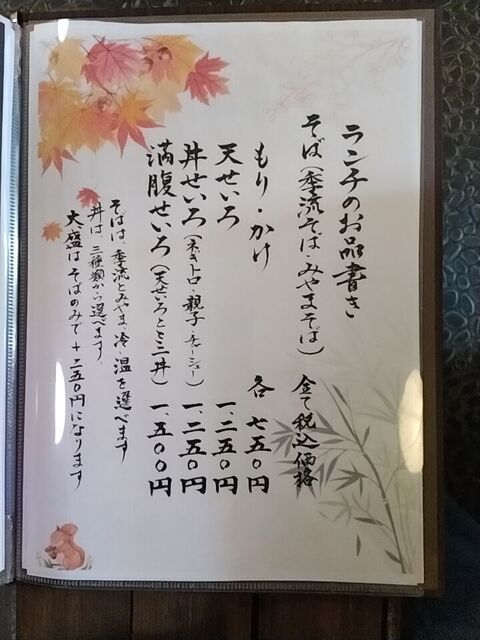 ランチのお品書き
そば(季流そば・みやまそば) 全て税込価格
もり・かけ 各 七五〇円
天せいろ 一、二五〇円
丼せいろ(ネギトロ・親子・チャーシュー) 一、二五〇円
満腹せいろ(天せいろとミニ丼) 一、五〇〇円
そばは、季流とみやま、冷・温を選べます
丼は、三種類から選べます。
大盛はそばのみで+二五〇円になります